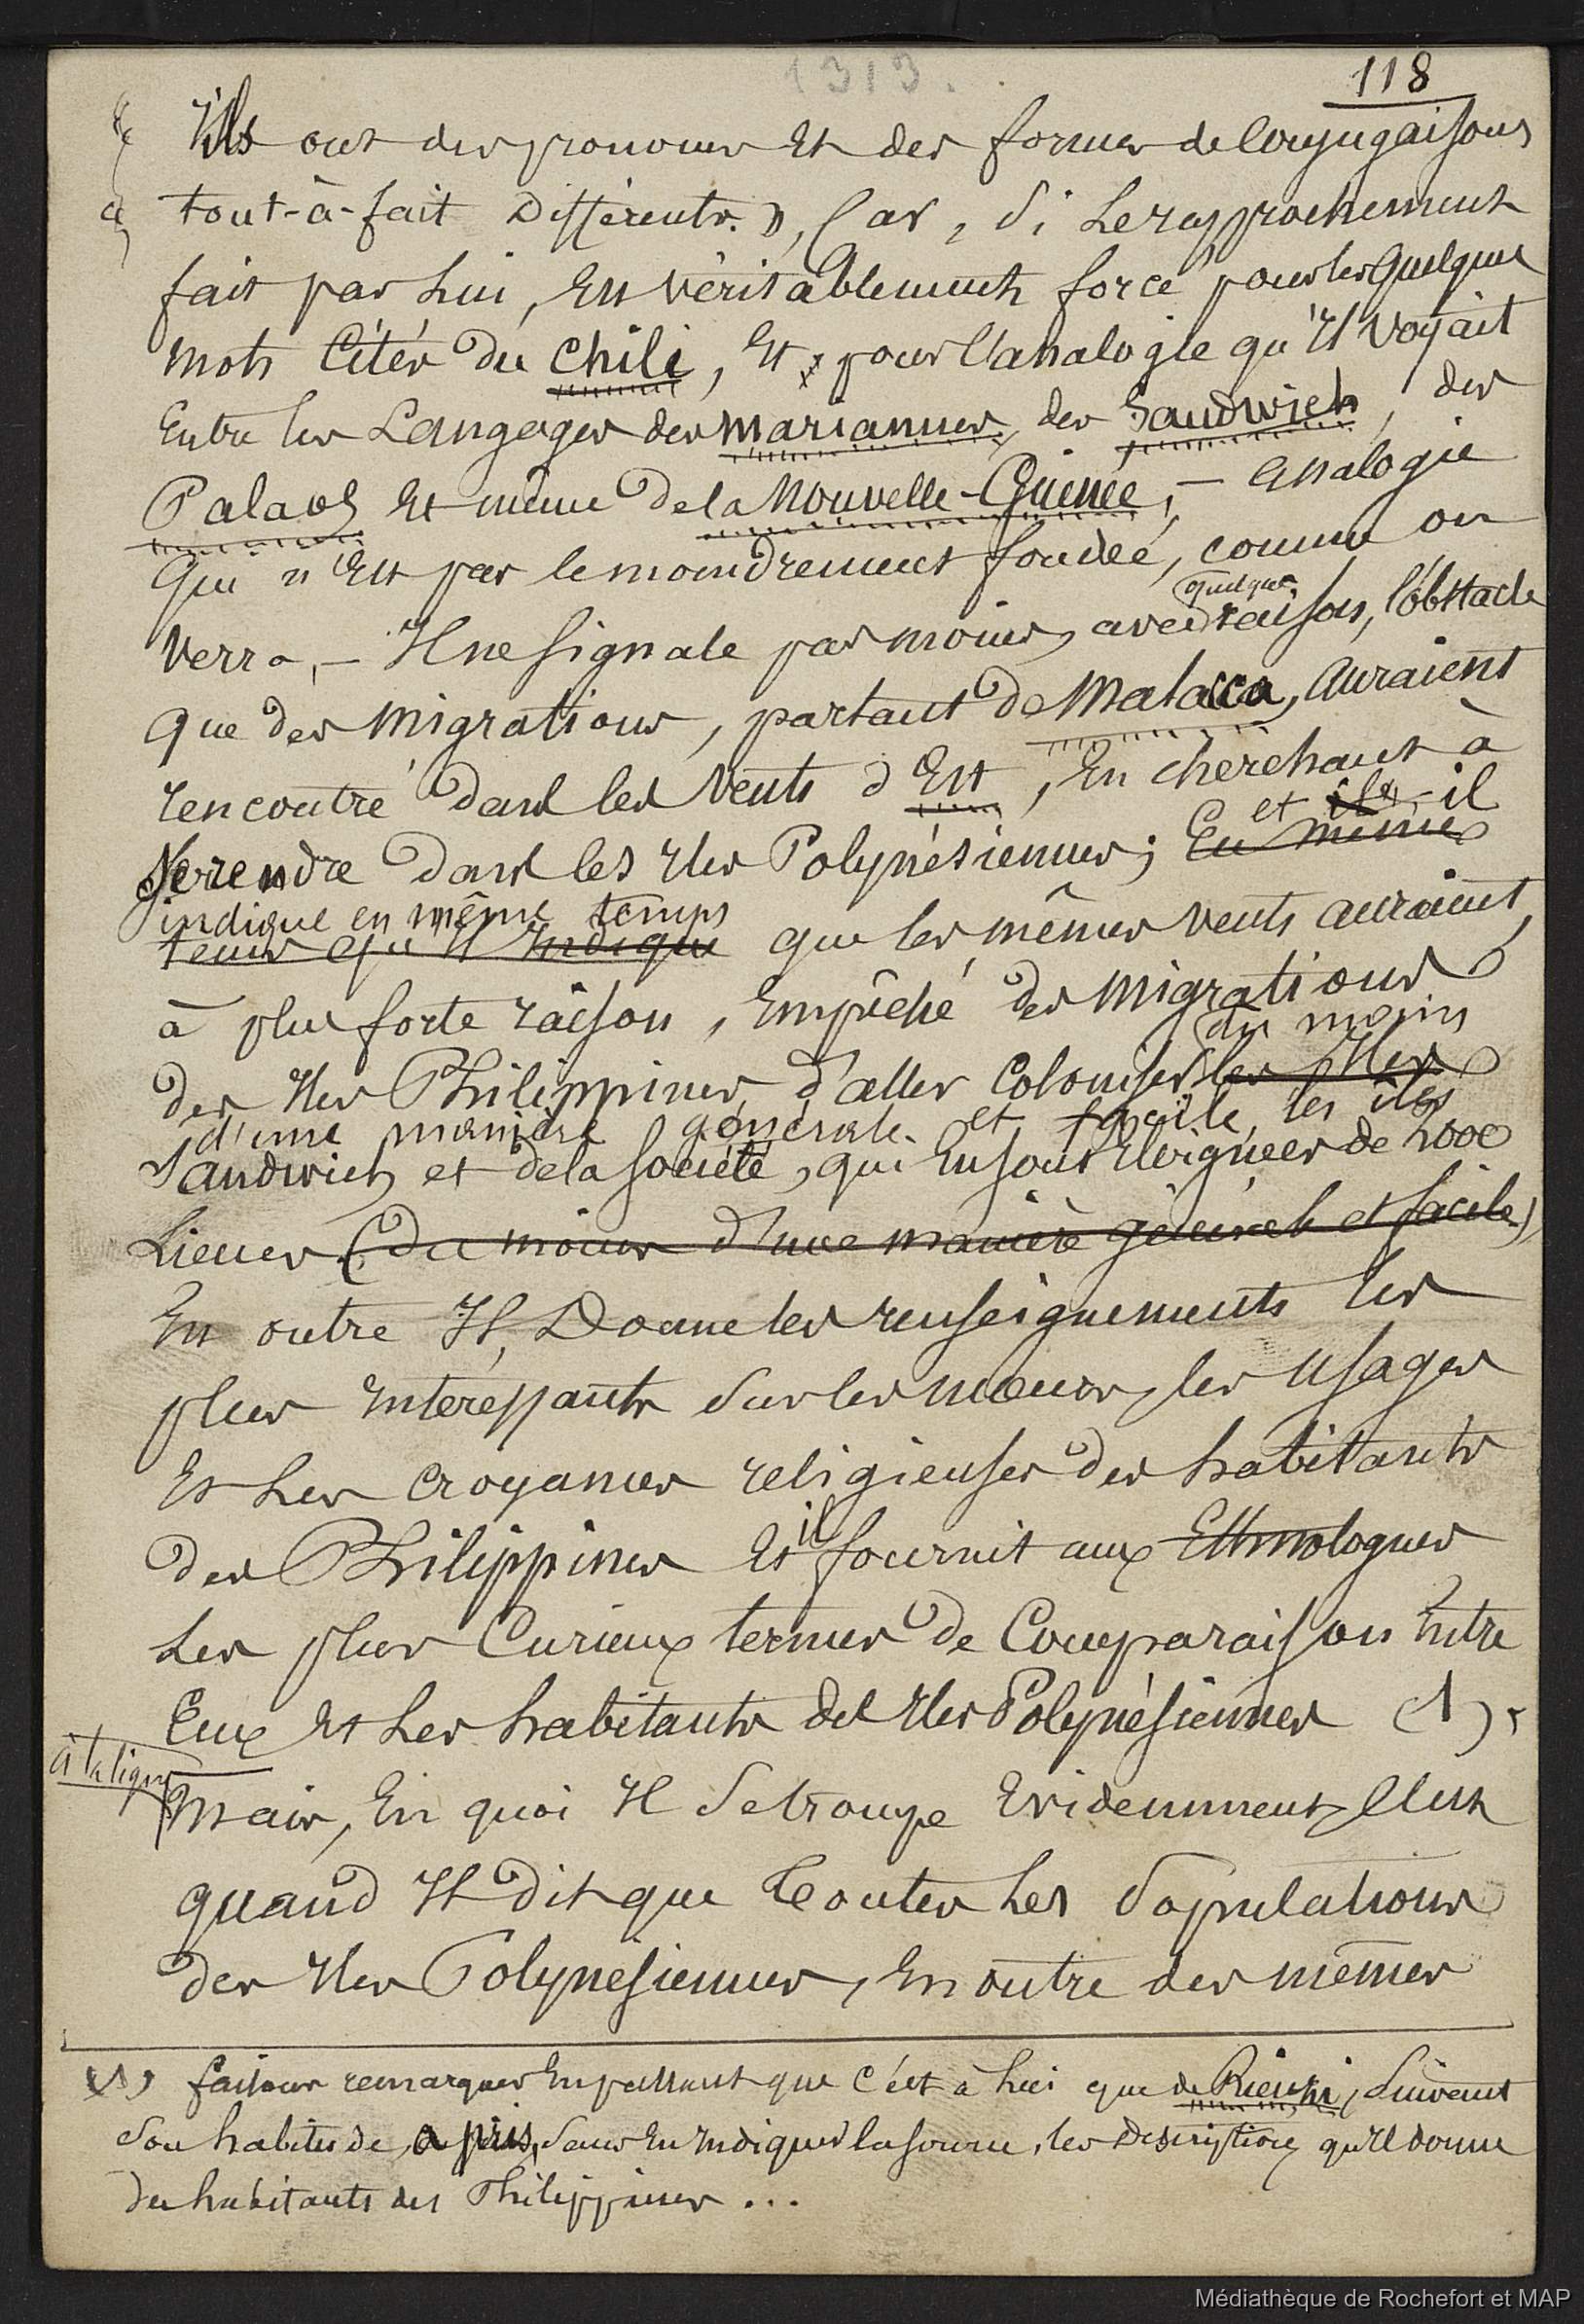 1313.
118
Ils ont des pronoms et des formes de conjugaisons
tout-à-fait différents. », Car, si le rapprochement
fait par lui, est véritablement forcé pour les quelques
mots cités du Chili, et pour l'analogie qu'il voyait
entre les langages des Mariannes, des Sandwich, des
Palaos et même de la Nouvelle-Guinée, — analogie
qui n'est pas le moindrement fondée, comme on
quelque
verra, — Il ne signale pas moins, avec raison, l'obstacle
que des migrations, partant de Malacca, auraient
rencontré dans les vents d'Est, en cherchant à
et ils il
se rendre dans les Iles Polynésiennes; En même
indique en même temps
temps qu'il indique que les mêmes vents auraient,
à plus forte raison, empêché des migrations
du moins
des Iles Philippines d'aller coloniser les Iles
d'une manière générale et facile, les îles
Sandwich et de la Société, qui en sont éloignées de 2000
lieues (du moins d'une manière générale et facile)
En outre Il Donne les renseignements les
plus intéressants sur les mœurs, les usages
et les croyances religieuses des habitants
il
des Philippines et fournit aux Ethnologues
les plus curieux termes de comparaison entre
Eux et les habitants des Iles Polynésiennes (1).
à la ligne
Mais, en quoi Il se trompe évidemment, c'est
quand Il dit que toutes les populations
des Iles Polynésiennes, en outre des mêmes
(1) faisons remarquer en passant que c'est à lui que de Rienzi, suivant
son habitude, a pris, sans en indiquer la source, les descriptions qu'Il donne
des habitants des Philippines ...
Médiathèque de Rochefort et MAP